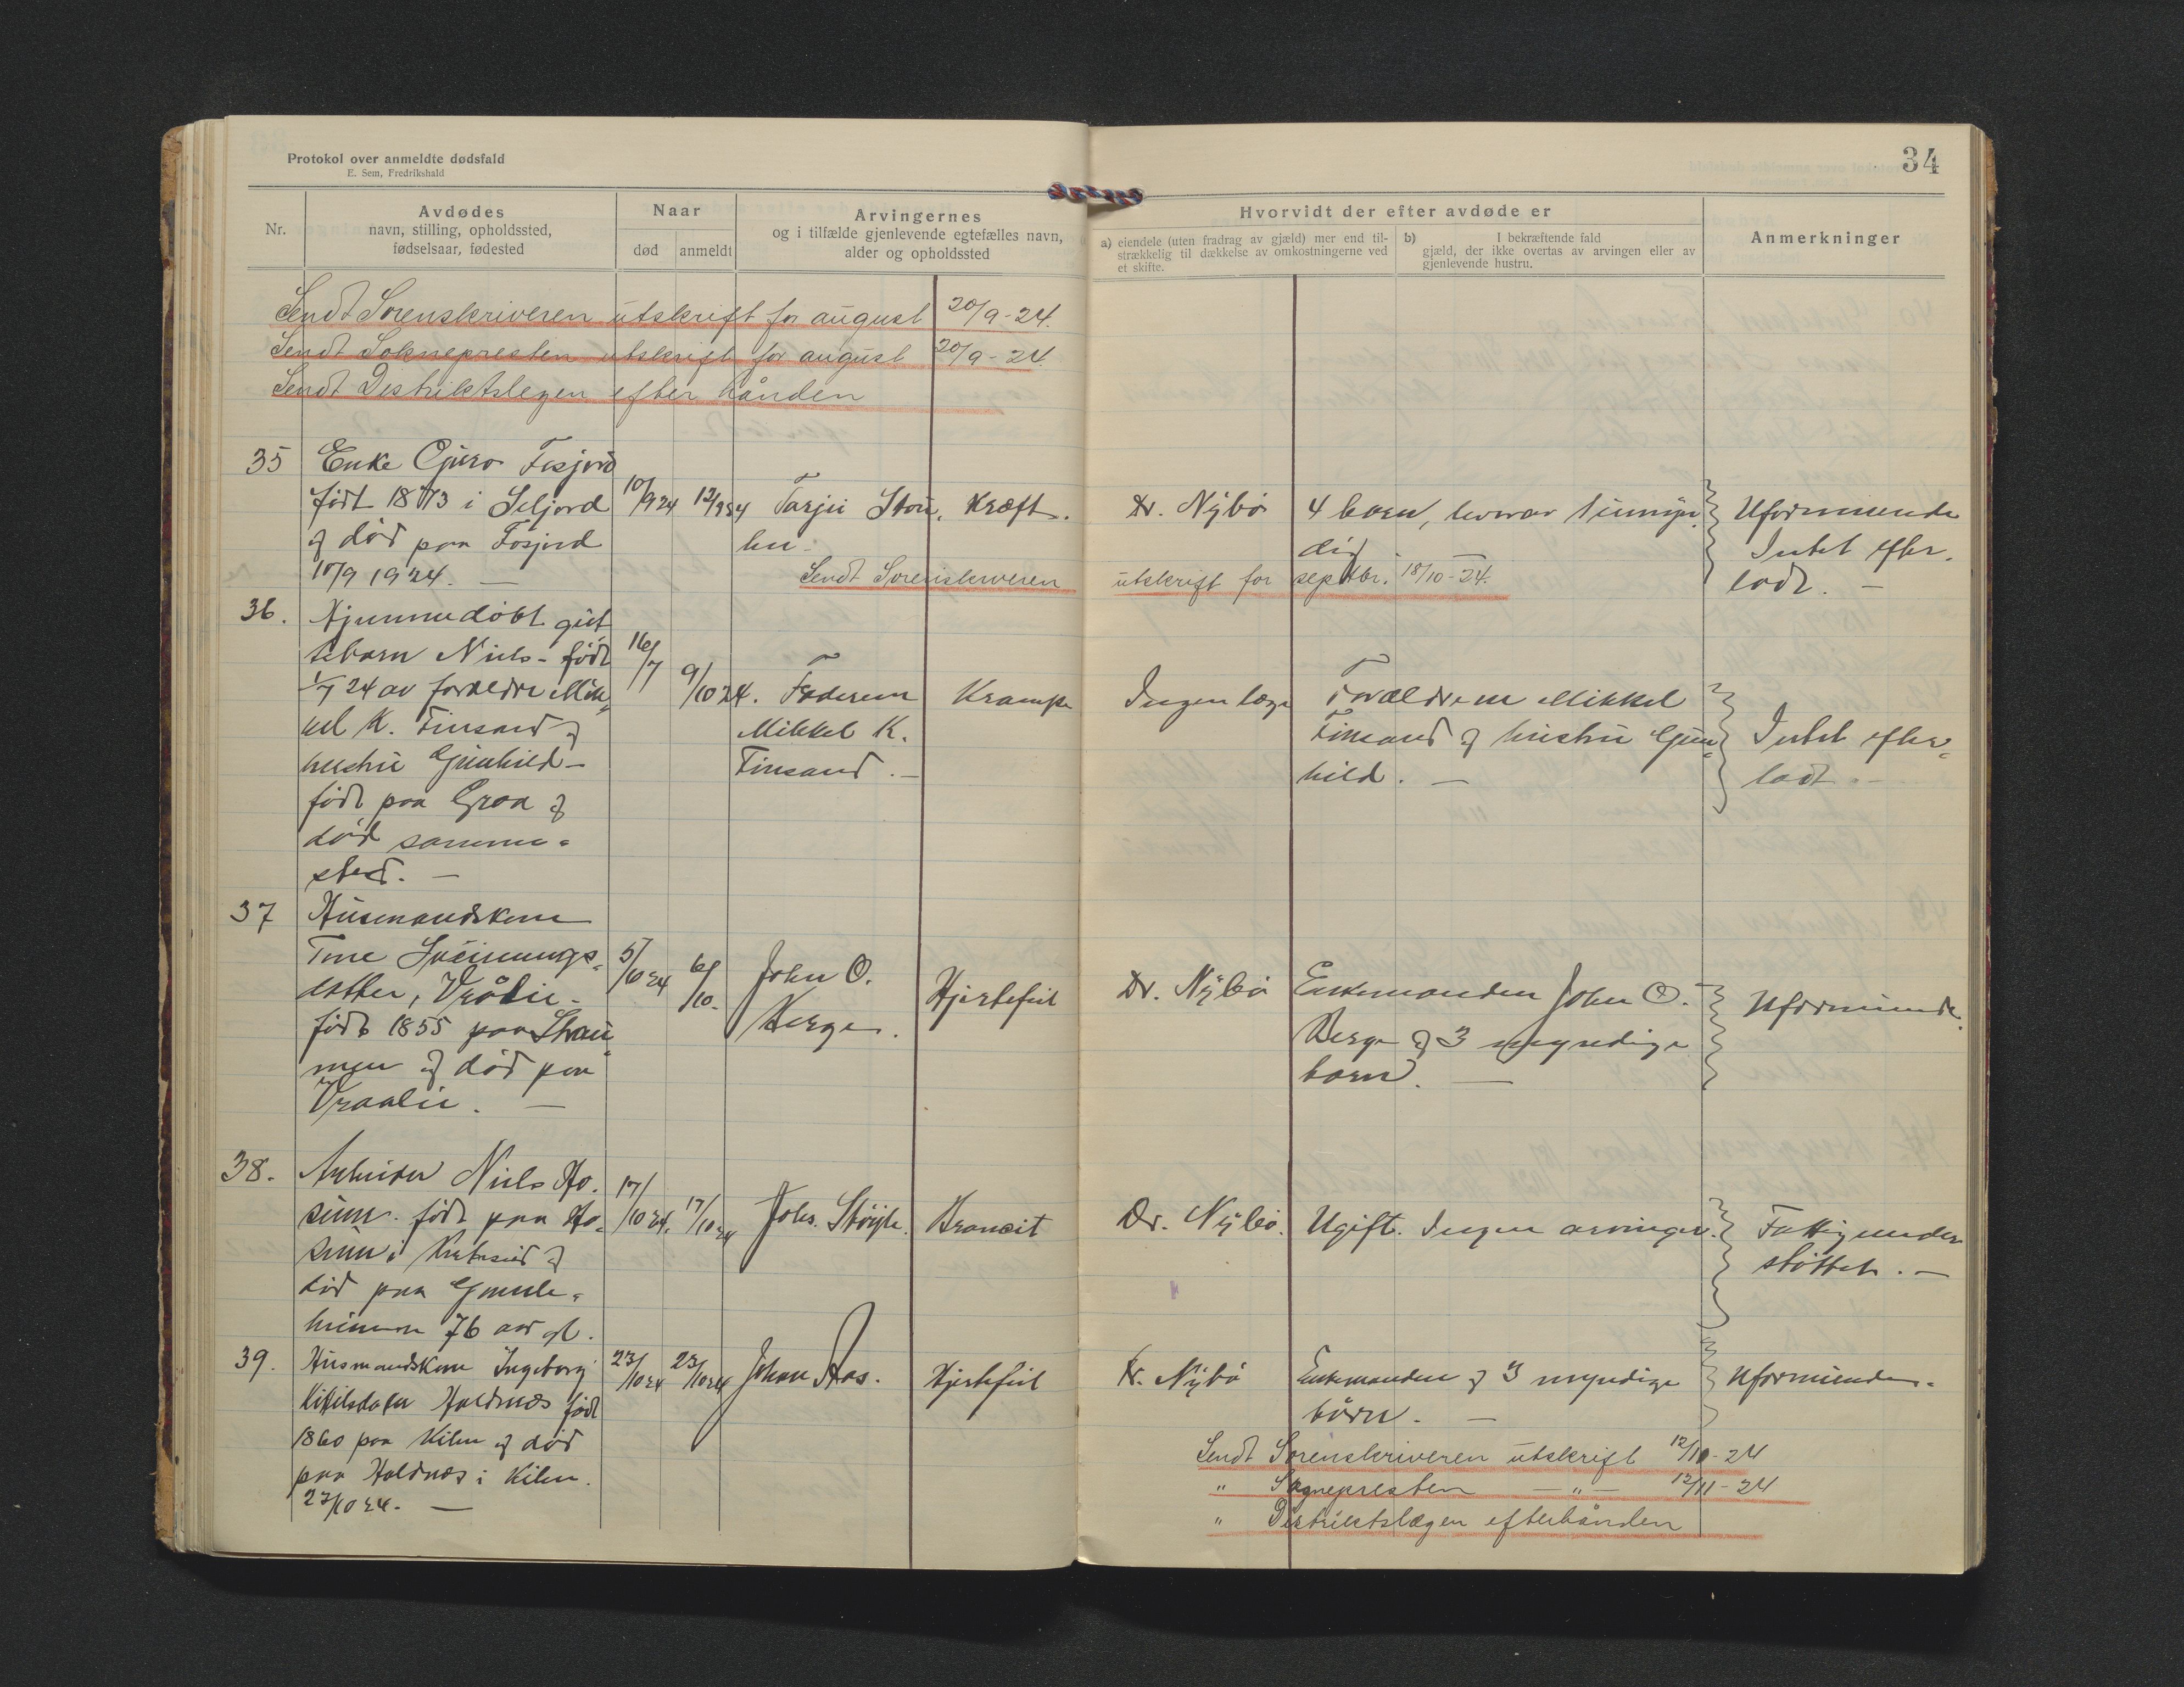 Protokol over anmeldte dødsfald
E. Sem, Fredrikshald
34
Nr.
Avdødes
navn, stilling, opholdssted,
fødselsaar, fødested
Naar
død
anmeldt
Arvingernes
og i tilfælde gjenlevende egtefælles navn,
alder og opholdssted
Hvorvidt der efter avdøde er
a) eiendele (uten fradrag av gjæld) mer end til-
strækkelig til dækkelse av omkostningerne ved
et skifte.
b) I bekræftende fald
gjæld, der ikke overtas av arvingen eller av
gjenlevende hustru.
Anmerkninger
Sendt Sorenskriveren utskrift for august 20/9-24.
Sendt Soknepresten utskrift for august 20/9-24.
Sendt Destriktslegen efter hånden
35
Enke Gjuro Fosjord
født 1873 i Seljord
og død paa Fosjord
10/9 1924. —
10/9 24
12/9 24
Tarjei
Kræft.
Dr. Nybö
4 born, hvorav 1 umyn.
dig
Uformuende
Intet efter.
ladt. —
Sendt Sorenskriveren utskrift for septbr. 18/10-24.
36.
Hjemmedöbt gut
tebarn Niels - född
1/7 24 av foreldre Mik„
kel K. Finsand og
hustru Gunhild —
födt paa Groa og
död samme„
sted. —
16/7
9/10 24.
Faderen
Mikkel K.
Finsand. —
Krampe
Ingen læge
Forældrene Mikkel
Finsand og hustru Gun„
hild. —
Intet efter„
ladt. —
37
Husmandskone
Tone
datter, Vrålie -
födt 1855 paa Strau„
men og död paa
Vraalie. —
5/10 24
6/10.
John O.
Berge.
Hjertefeil
Dr. Nybö
Enkemanden John O.
Berge og 3 myndige
born. —
Uformuende.
38.
Arbeider Niels Ho.
suim. födt paa Ho„
suim i og
död paa Gamle„
hiemmen 76 aar gl.
17/10 24.
17/10 24
Johs. Stöyle.
Dr. Nybö.
Ugift. Ingen arvinger.
Fattigunder
støttet. —
39.
Husmandskone Ingeborg
Kittilsdatter Holdnæs född
1860 paa Kilen og död
paa Holdnæs i Kilen.
23/10 24. —
23/10 24
23/10 24
Johan Aas.
Hjertefeil
Dr. Nybö
Enkemanden og 3 myndige
börn. —
Uformuende.
Sendt Sorenskriveren utskrift 12/11-24
" Sogneprestem — " — 12/11-24
" Distriktslægen efterhånden